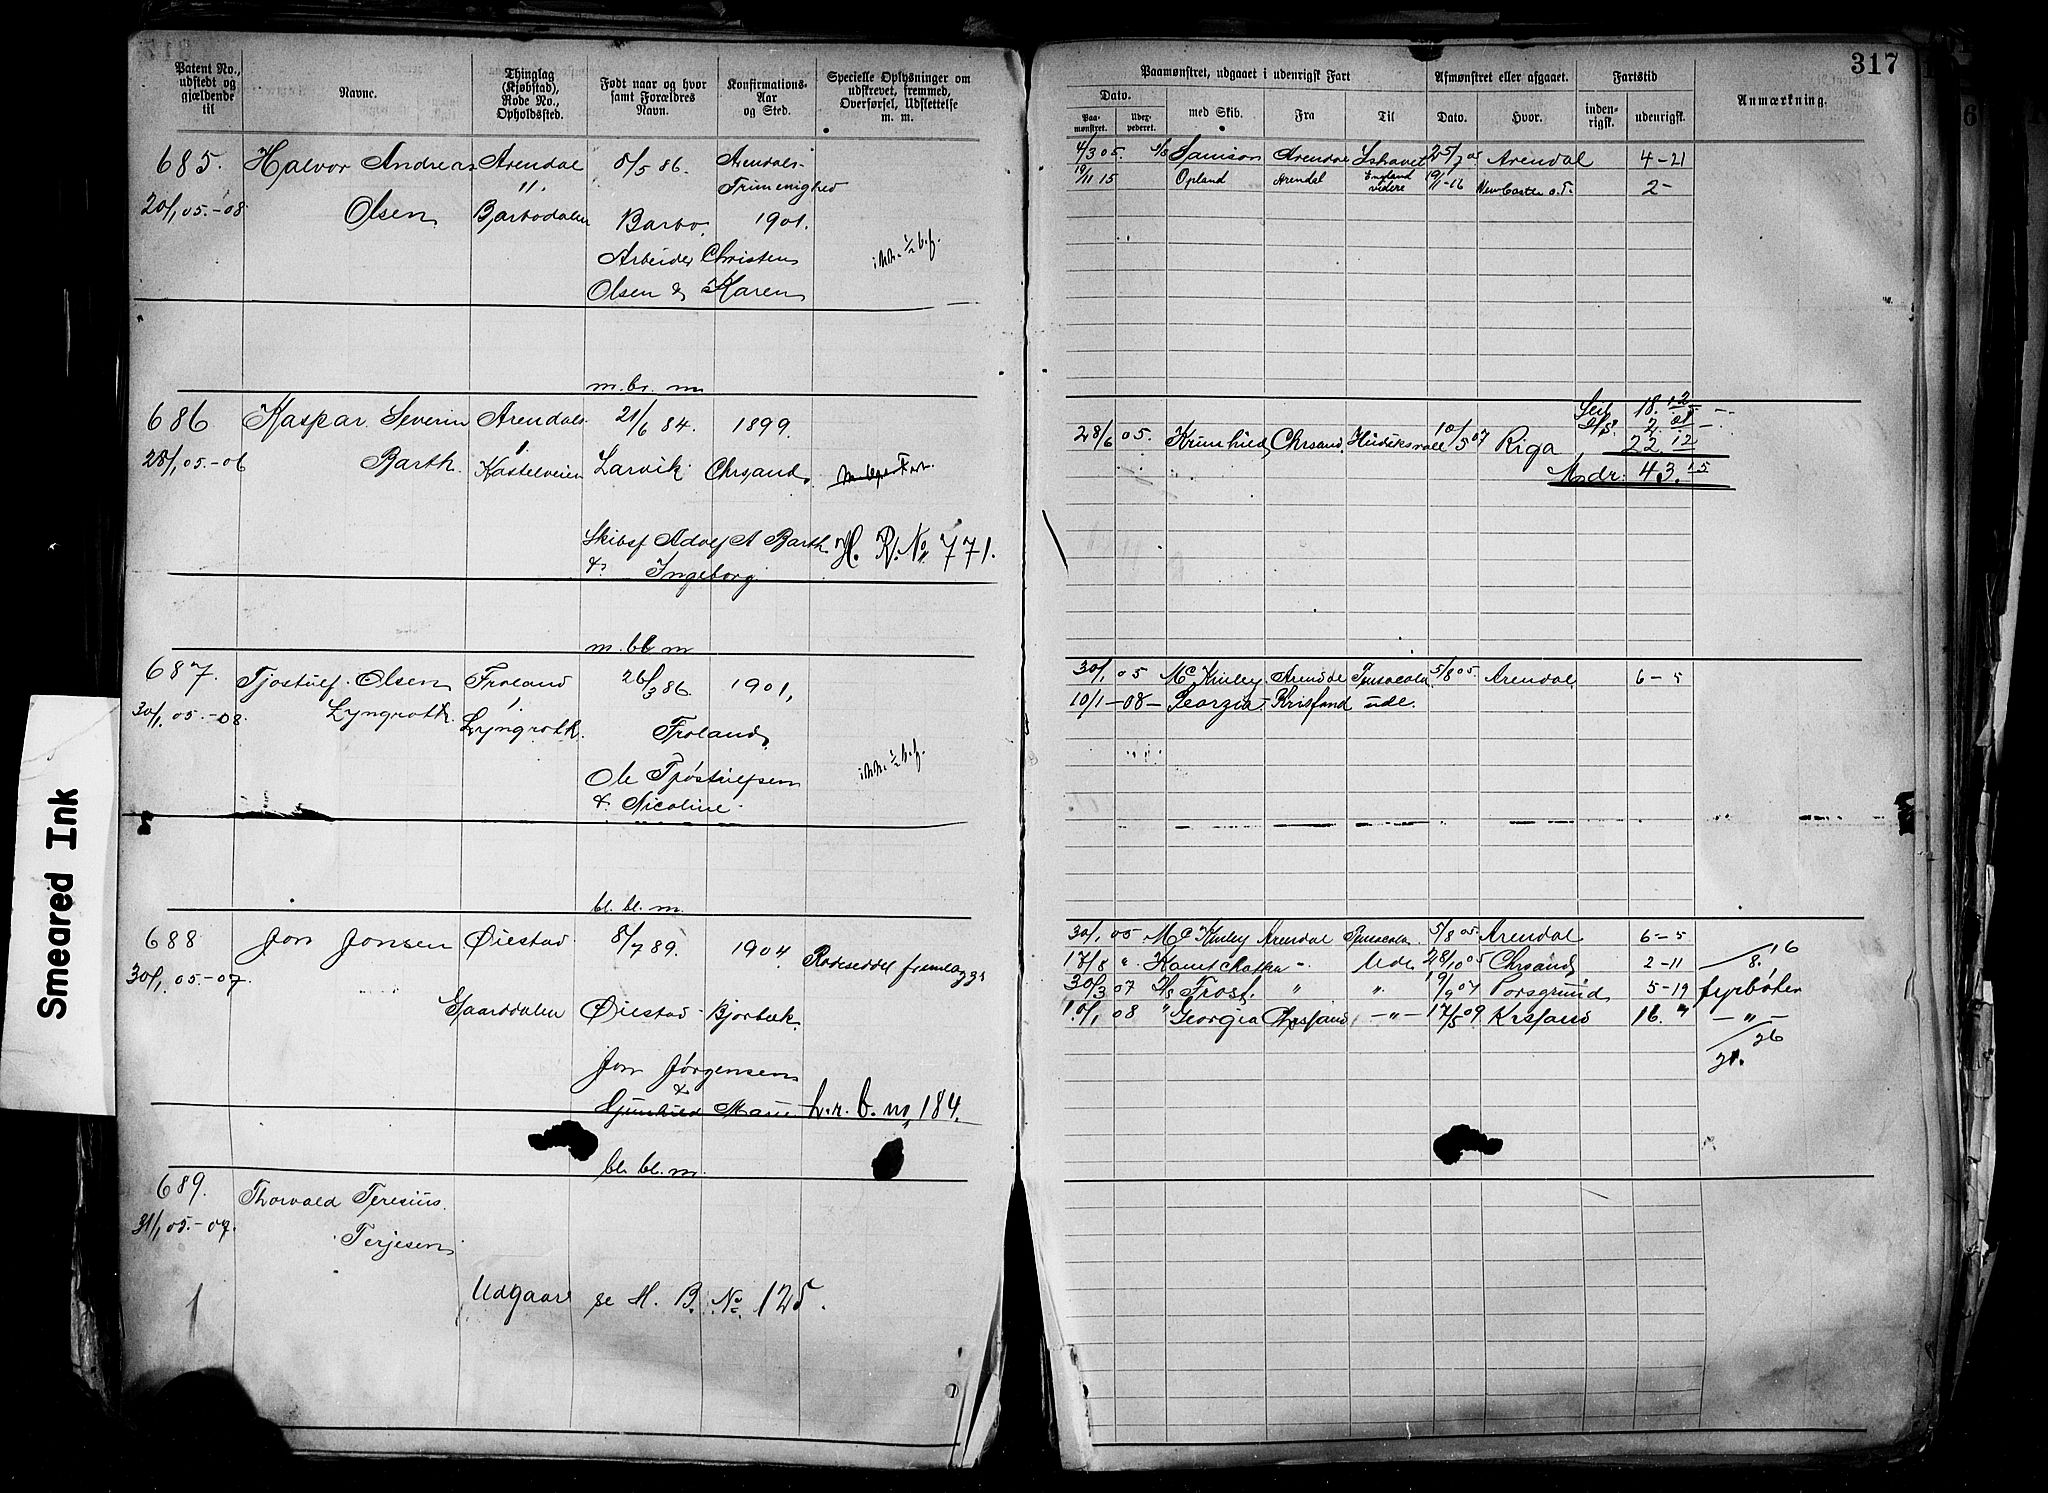 317
Patent No., udstedt og gjældende til
Navne.
Thinglag (Kjøbstad), Rode No., Opholdssted.
Født naar og hvor samt Forældres Navn.
Konfirmations-Aar og Sted.
Specielle Oplysninger om udskrevet, fremmed, Overførsel, Udslettelse m. m.
Paamønstret, udgaaet i udenrigsk Fart
Afmønstret eller afgaaet.
Fartstid
Anmærkning.
Dato.
Paa-mønstret.
Udex-pederet.
med Skib.
Fra
Til
Dato.
Hvor.
inden-rigsk.
udenrigsk.
685. Halvor Andreas Arendal 8/5 86. Arendals-
" Trimenighed
20/1 05.-08 Olsen Barbodalen Barbo. 1901.
Arbeider Christen
Olsen & Karen
4/3 05. Samson Arendal Ishavet 25/7 05 Arendal 4-21
19/11 15 Opland Arendal England videre 19/1-16 New Castle o. T. 2-
m. br. m
686 Kaspar Severin Arendals 21/6 84. 1899.
28/1 05.-06 Barth. Kastelveien Larvik Chrsand.
Skibsf Adolf A Barth H. R. No 771.
&. Ingeborg
28/6 05. Krimhild Chrsand. Hudiksvall 10/5 07 Riga
Seil 18. 12
2.
22. 12
Mdr. 43. 15
m. bl. m
687. Tjostulf Olsen Froland 26/3 86 1901,
30/1 05.-08. Lyngroth. Lyngroth.
Froland.
Ole Tjøstulfsen
&. Nicoline.
30/1 05 Mc Kinley Arendal Pensacola 5/8 05. Arendal 6-5
10/1-08- Georgia- Krisfand ude.
bl. bl. m.
688 Jon Jonsen Øiestad 8/7 89. 1904 Rodeseddel fremlægges
30/1 05-07
Gaarddalen Øiestad Bjorbæk
Jon Jørgensen
&
Gunhild Marie h. r. b. no 184.
30/1 05 Mc Kinley Arendal Pensacola 5/8 05 Arendal 6-5
17/8 " Kamtchatka " Ude 28/10 05 Chrsand 2-11 8. 16
30/3 07 Frost. " " 19/9 07 Porsgrund 5-19 fyrbøter
10/1 08 " Georgia Chrsand, -"- 17/5 09 Krsfand 16. " -"-
26
21.
bl. bl. m.
689. Thorvald Teresius
31/1 05.-07. Terjesen
Udgaar se H. B. No 125.
Smeared Ink